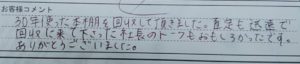 お客様コメント
30年使った本棚を回収して頂きました。査定も迅速で
回収に来て下さった社長のトークもおもしろかったです。
ありがとうございました。